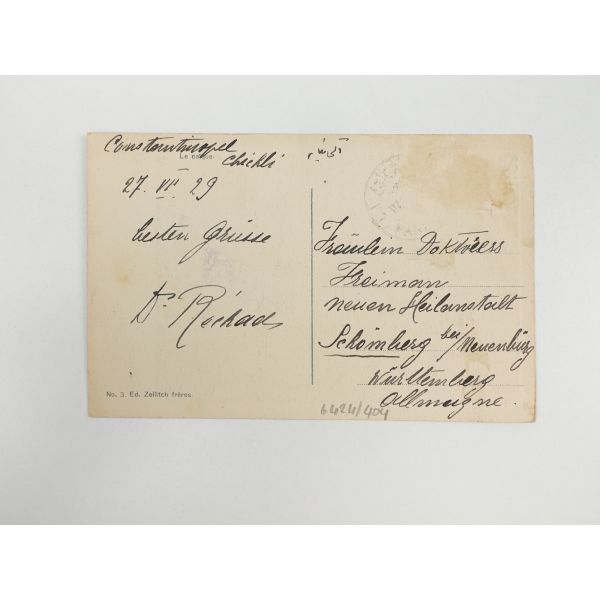 Constantinopel
Le caisse.
Chichli
27. VII 29
besten Grüsse
Dr Réchad
No. 3. Ed. Zellitch frères.
Fräulein Doktoress
Freiman
neuen Heilanstalt
Schömberg bei/Neuenbürg
Württemberg
Allmaigne.
6424/404